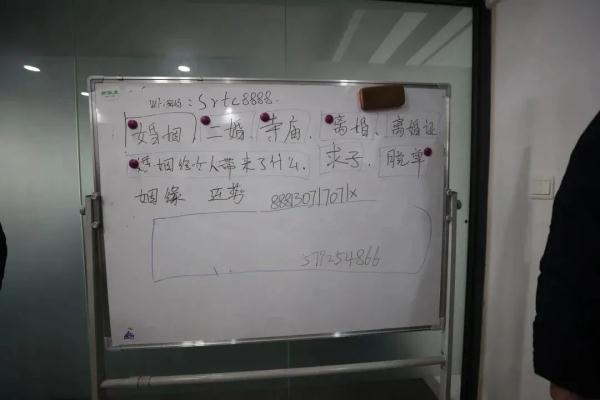 WiFi密码:srtc8888.
婚姻、二婚、寺庙、离婚、离婚证
婚姻给女人带来了什么、求子、脱单
姻缘
88813071707/x
579254866